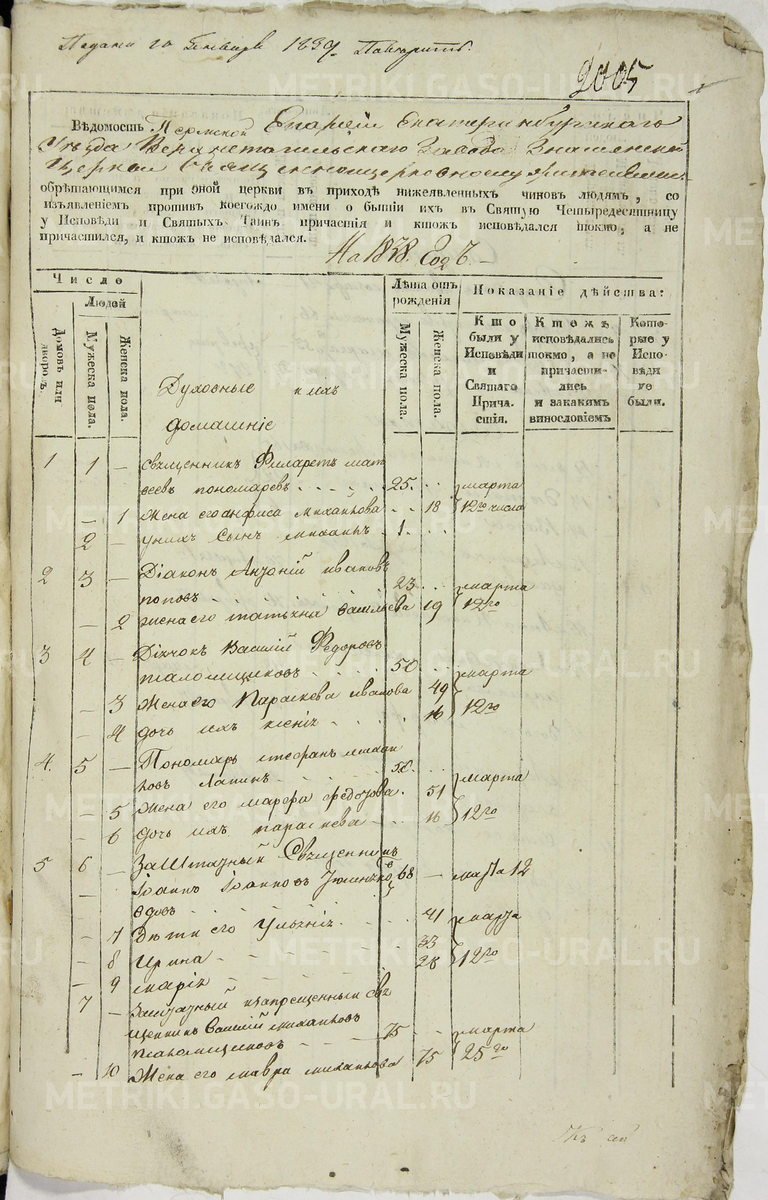 2005
Вѣдомость Пермской Епархіи Екатеринбургскаго
Уѣзда Верхнетагильскаго Завода Знаменской
Церкви
обрѣтающимся при оной церкви въ приходѣ нижеявленныхъ чиновъ людямъ, со
изъявленіемъ противъ коегождо имени о бытіи ихъ въ Святую Четыредесятницу
у Исповѣди и Святыхъ Таинъ причастія и ктожъ исповѣдался токмо, а не
причастился, и ктожъ не исповѣдался.
На 1838. Годъ.
Число
Людей
Домовъ или дворовъ.
Мужеска пола.
Женска пола.
Духовные и ихъ
домашніе
Лѣта отъ
рожденія
Мужеска пола.
Женска пола.
Показаніе дѣйства:
Кто
были у
Исповѣди
и
Святаго
Прича-
стія.
Ктожъ
исповѣдались
токмо, а не
причасти-
лись
и закакимъ
винословіемъ
Кото-
рые у
Испо-
вѣди
не
были.
1 1 — Священникъ Филаретъ мат
ѳеевъ пономаревъ 25. марта
— 1 Жена его анфиса михайлова 18 12го числа
2 — у нихъ сынъ михаилъ 1.
2 3 — Діаконъ Иванов
попов 23 марта
— 2 жена его татьяна васильева 19 12го
3 4 — Дьячокъ Василій Федоровъ
50 марта
— 3 Жена его Параскева иванова 49 12го
— 4 дочь ихъ ксенія 16
4. 5 — Пономарь стефанъ
ковъ Лапинъ 58. марта
— 5 Жена его марфа федотова. 51 12го
— 6 дочь ихъ параскева 16
5 6 — Заштатный Священникъ
Іоаннъ Іоанновъ 68 — марта 12
вдовъ
— 7 Дѣти его 41 марта
— 8 Ирина 33 12го
— 9 марія 28
7 — Заштатный и запрещенный свя
щенникъ Василій михайловъ
75 марта
— 10 Жена его мавра михайлова 75 25го
METRIKI.GASO-URAL.RU